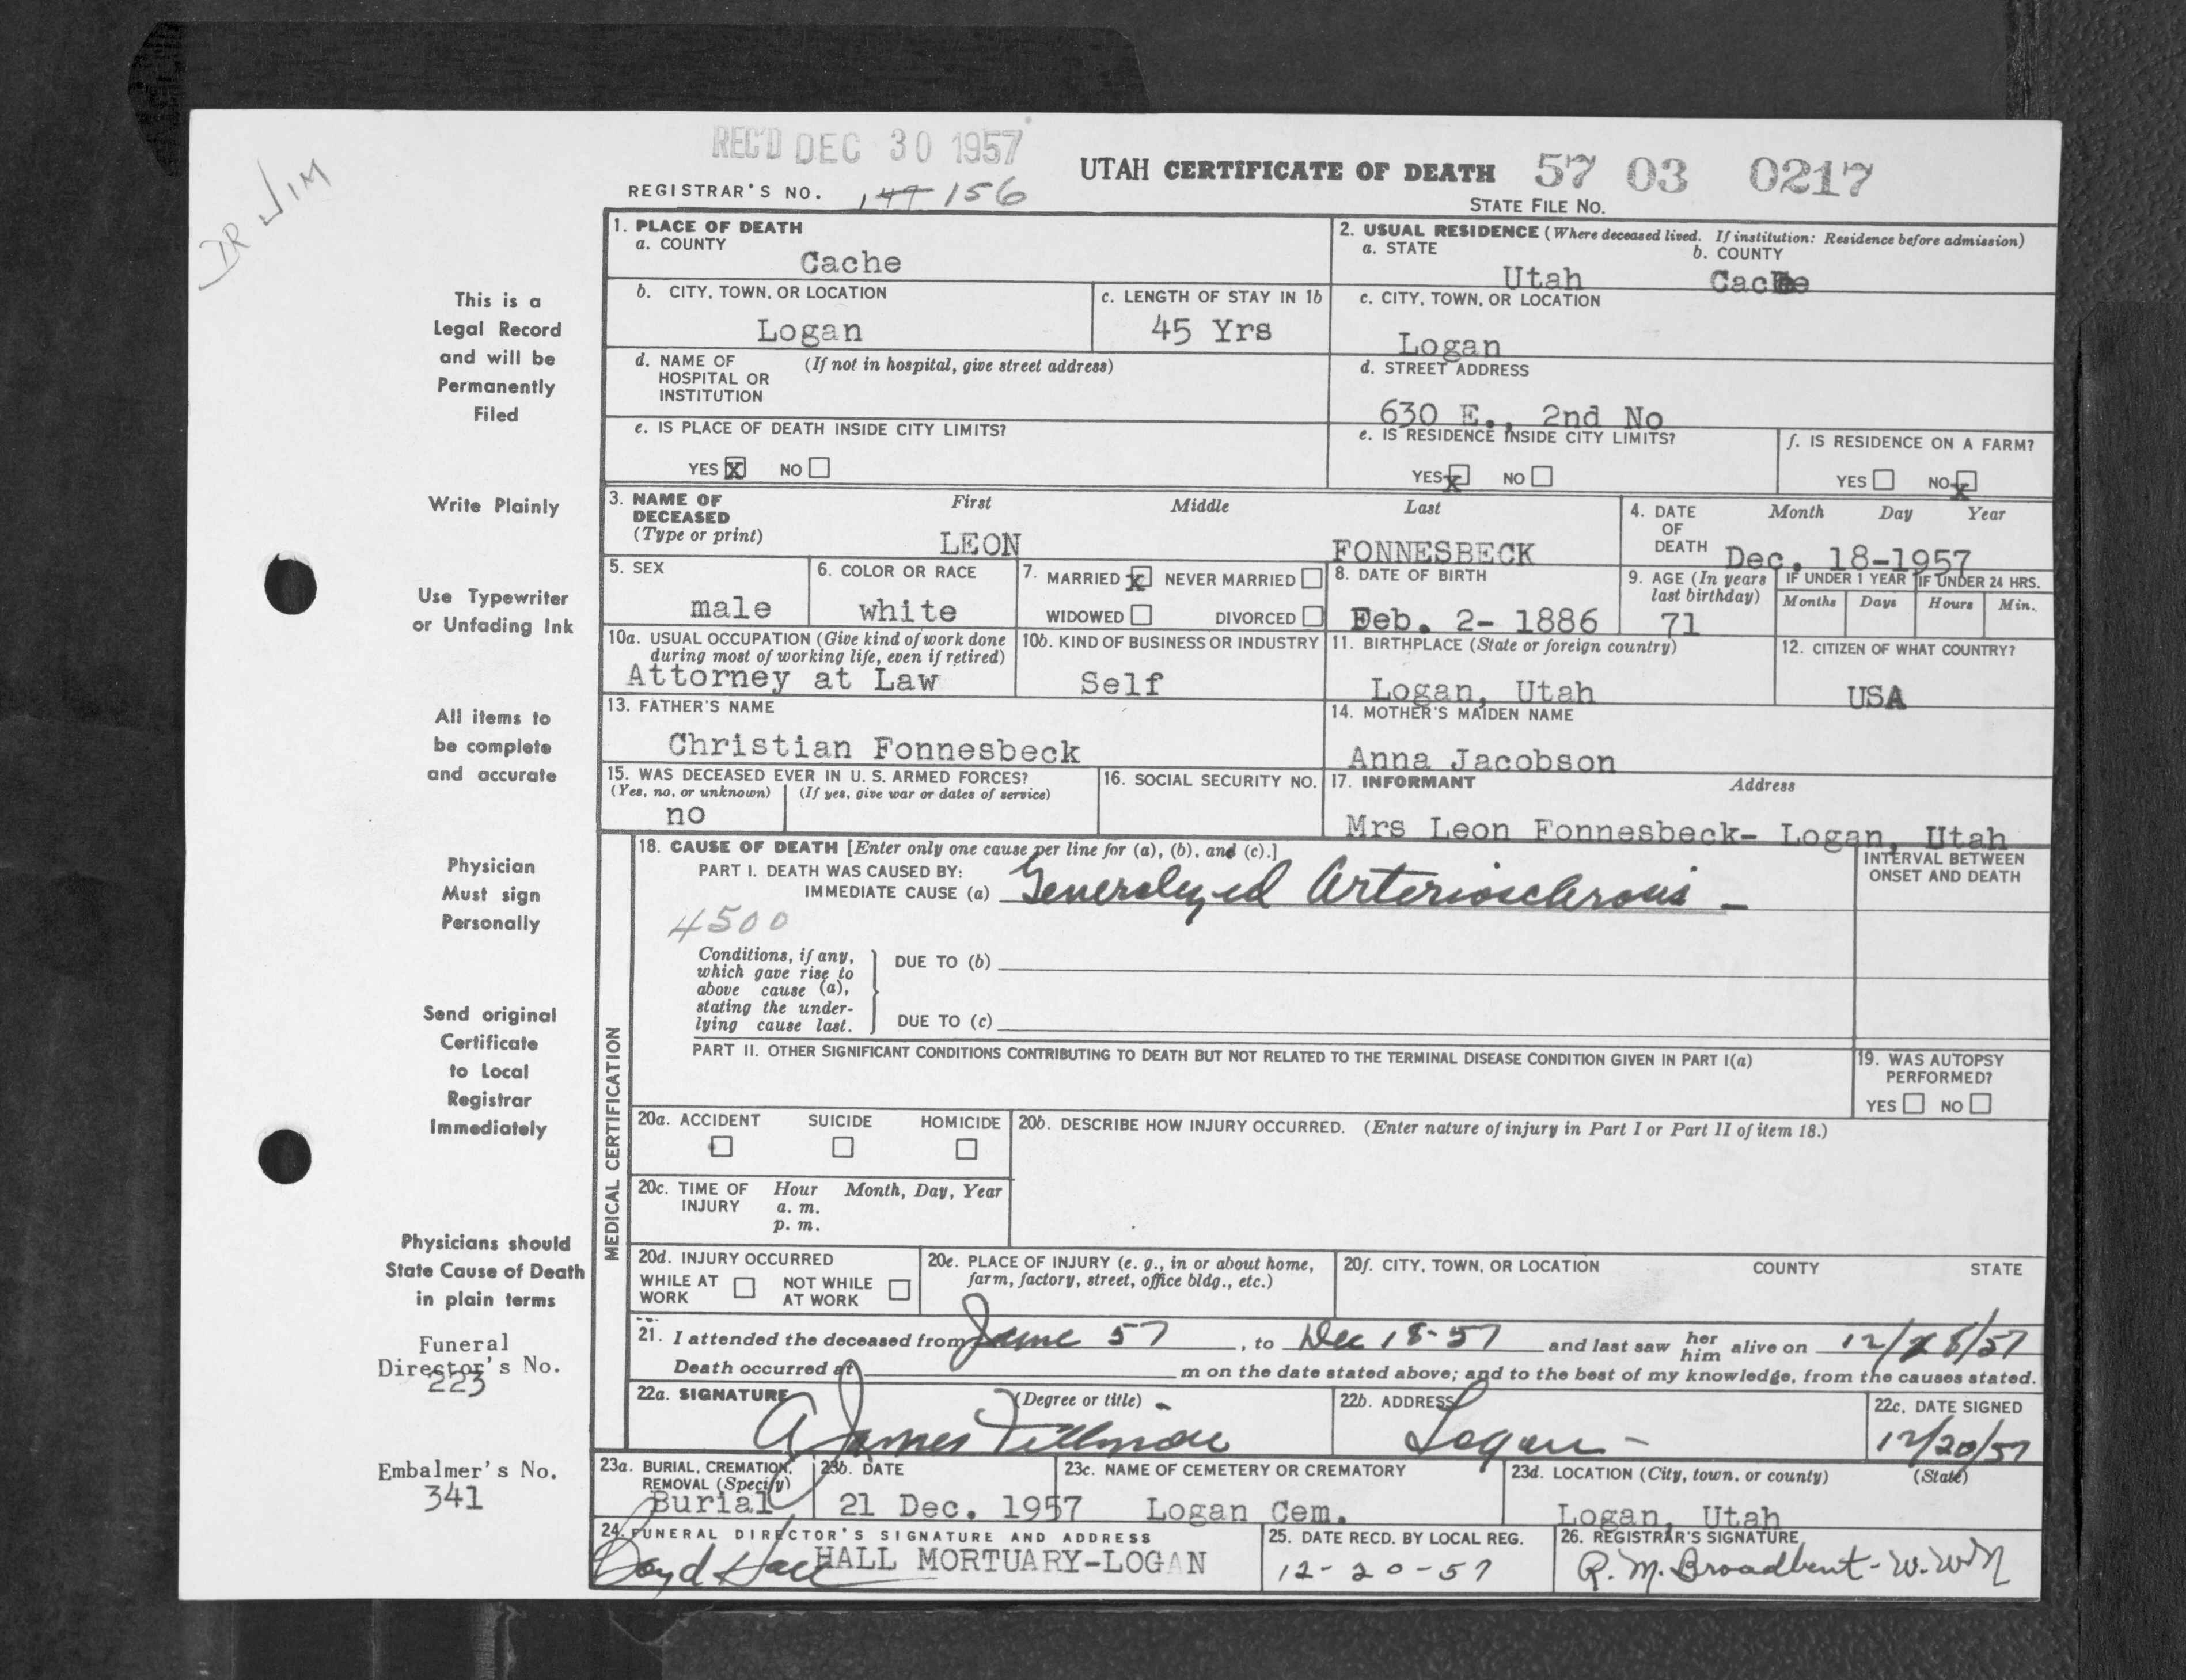 DR JIM
REC'D DEC 30 1957
UTAH CERTIFICATE OF DEATH 57 03 0217
REGISTRAR'S NO. 147 156
STATE FILE NO.
This is a
Legal Record
and will be
Permanently
Filed
Write Plainly
Use Typewriter
or Unfading Ink
All items to
be complete
and accurate
Physician
Must sign
Personally
Send original
Certificate
to Local
Registrar
Immediately
Physicians should
State Cause of Death
in plain terms
Funeral
Director's No.
223
Embalmer's No.
341
1. PLACE OF DEATH
a. COUNTY
Cache
2. USUAL RESIDENCE (Where deceased lived. If institution: Residence before admission)
a. STATE b. COUNTY
Utah Cache
b. CITY, TOWN, OR LOCATION
Logan
c. LENGTH OF STAY IN 1b
45 Yrs
c. CITY, TOWN, OR LOCATION
Logan
d. NAME OF (If not in hospital, give street address)
HOSPITAL OR
INSTITUTION
d. STREET ADDRESS
630 E., 2nd No
e. IS PLACE OF DEATH INSIDE CITY LIMITS?
YES X NO
e. IS RESIDENCE INSIDE CITY LIMITS?
YES X NO
f. IS RESIDENCE ON A FARM?
YES NO X
3. NAME OF First Middle Last
DECEASED
(Type or print)
LEON FONNESBECK
4. DATE Month Day Year
OF
DEATH Dec. 18-1957
5. SEX
male
6. COLOR OR RACE
white
7. MARRIED X NEVER MARRIED
WIDOWED DIVORCED
8. DATE OF BIRTH
Feb. 2- 1886
9. AGE (In years
last birthday)
71
IF UNDER 1 YEAR IF UNDER 24 HRS.
Months Days Hours Min.
10a. USUAL OCCUPATION (Give kind of work done
during most of working life, even if retired)
Attorney at Law
10b. KIND OF BUSINESS OR INDUSTRY
Self
11. BIRTHPLACE (State or foreign country)
Logan, Utah
12. CITIZEN OF WHAT COUNTRY?
USA
13. FATHER'S NAME
Christian Fonnesbeck
14. MOTHER'S MAIDEN NAME
Anna Jacobson
15. WAS DECEASED EVER IN U. S. ARMED FORCES?
(Yes, no, or unknown) (If yes, give war or dates of service)
no
16. SOCIAL SECURITY NO.
17. INFORMANT Address
Mrs Leon Fonnesbeck- Logan, Utah
MEDICAL CERTIFICATION
18. CAUSE OF DEATH [Enter only one cause per line for (a), (b), and (c).]
PART I. DEATH WAS CAUSED BY:
IMMEDIATE CAUSE (a) Generalyzed Arteriosclerosis -
INTERVAL BETWEEN
ONSET AND DEATH
4500
Conditions, if any,
which gave rise to
above cause (a),
stating the under-
lying cause last.
DUE TO (b)
DUE TO (c)
PART II. OTHER SIGNIFICANT CONDITIONS CONTRIBUTING TO DEATH BUT NOT RELATED TO THE TERMINAL DISEASE CONDITION GIVEN IN PART I(a)
19. WAS AUTOPSY
PERFORMED?
YES NO
20a. ACCIDENT SUICIDE HOMICIDE
20b. DESCRIBE HOW INJURY OCCURRED. (Enter nature of injury in Part I or Part II of item 18.)
20c. TIME OF Hour Month, Day, Year
INJURY a. m.
p. m.
20d. INJURY OCCURRED
WHILE AT NOT WHILE
WORK AT WORK
20e. PLACE OF INJURY (e. g., in or about home,
farm, factory, street, office bldg., etc.)
20f. CITY, TOWN, OR LOCATION COUNTY STATE
21. I attended the deceased from June 57, to Dec 18-57 and last saw her him alive on 12/18/57
Death occurred at m on the date stated above; and to the best of my knowledge, from the causes stated.
22a. SIGNATURE (Degree or title)
A James Fillmore
22b. ADDRESS
Logan -
22c. DATE SIGNED
12/20/57
23a. BURIAL, CREMATION,
REMOVAL (Specify)
Burial
23b. DATE
21 Dec. 1957
23c. NAME OF CEMETERY OR CREMATORY
Logan Cem.
23d. LOCATION (City, town, or county) (State)
Logan, Utah
24. FUNERAL DIRECTOR'S SIGNATURE AND ADDRESS
Boyd Hall HALL MORTUARY-LOGAN
25. DATE RECD. BY LOCAL REG.
12-20-57
26. REGISTRAR'S SIGNATURE
R. M. Broadbent-